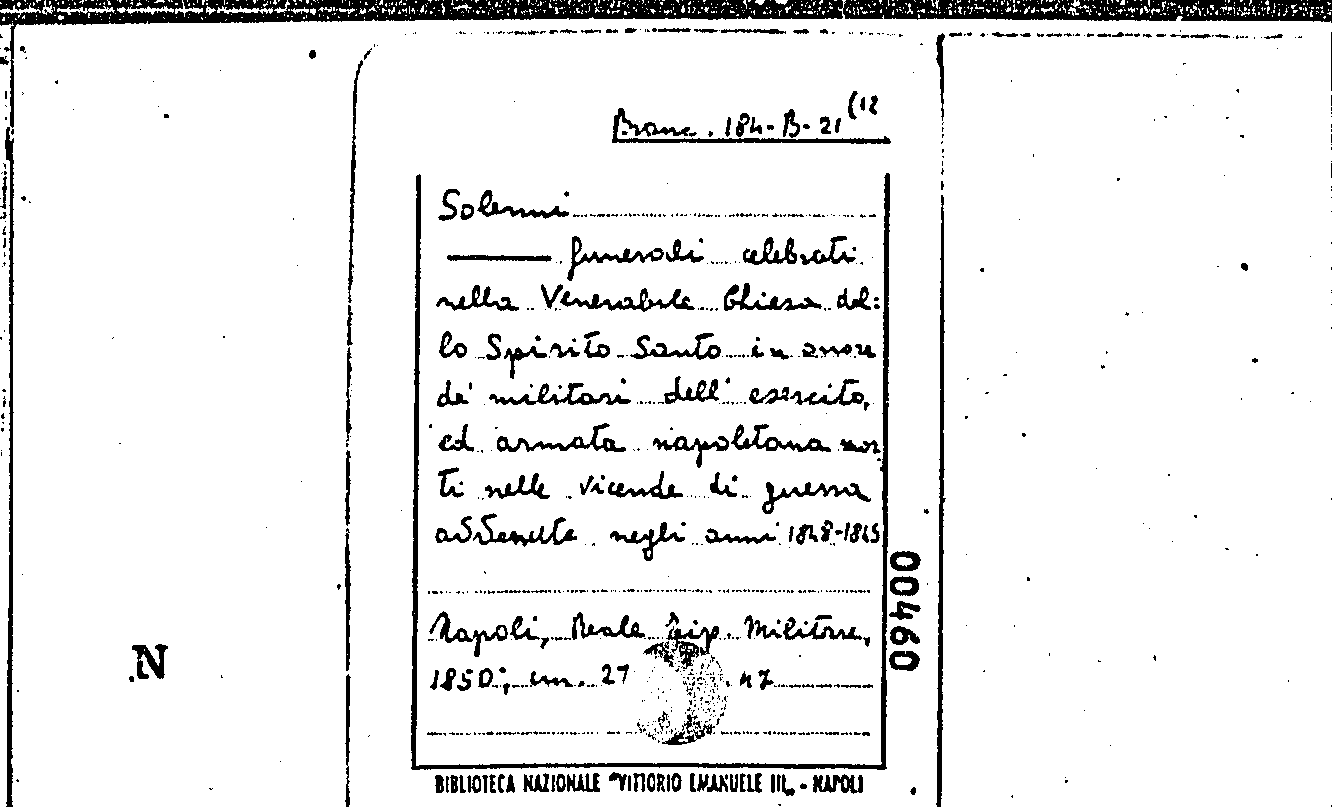 Branc. 184-B-21 (12
Solenni
funerali celebrati
nella Venerabile Chiesa del:
lo Spirito Santo in onore
de' militari dell' esercito,
ed armata napoletana mor
ti nelle vicende di guerra
avvenute negli anni 1848-1849
Napoli, Reale Tip. Militare,
1850; cm. 27 . 47
BIBLIOTECA NAZIONALE "VITTORIO EMANUELE III„ - NAPOLI
00460
N